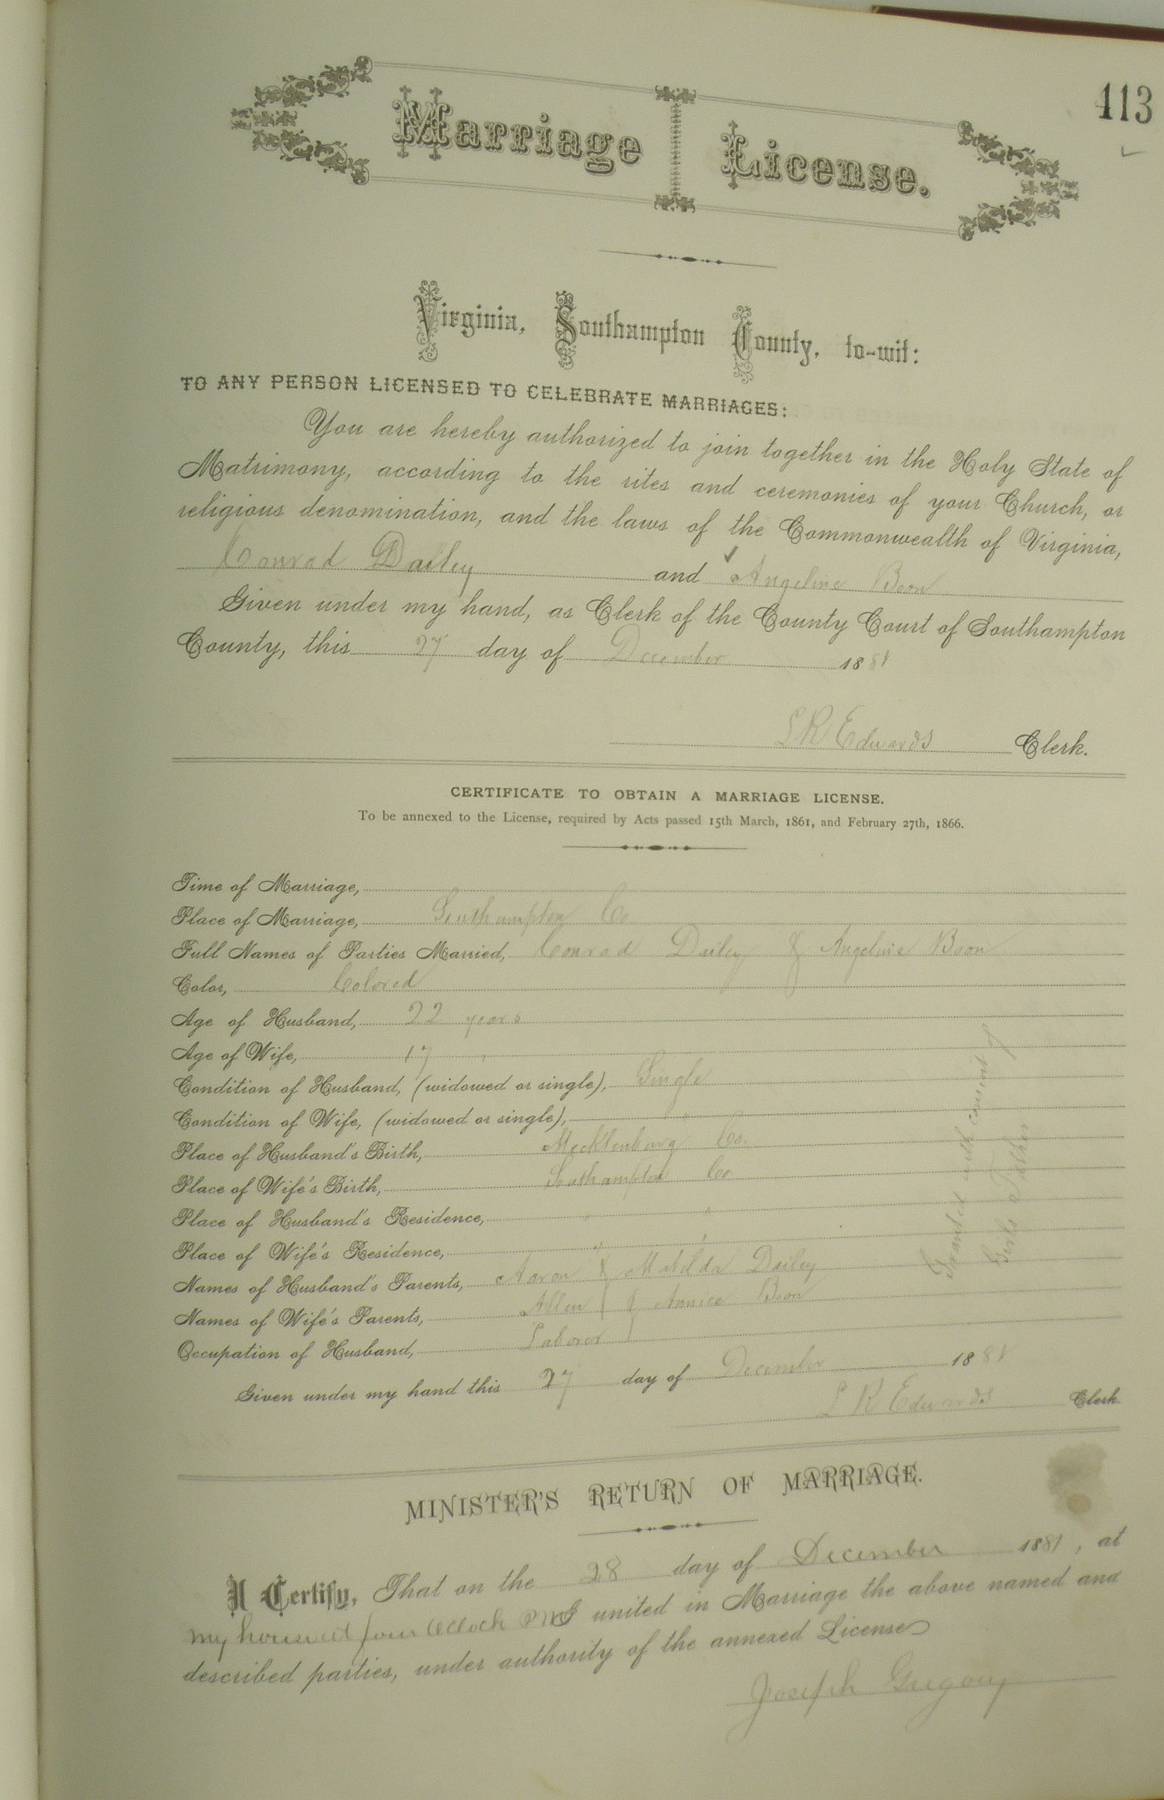 113
Marriage License.
Virginia, Southampton County, to-wit:
TO ANY PERSON LICENSED TO CELEBRATE MARRIAGES:
You are hereby authorized to join together in the Holy State of
Matrimony, according to the rites and ceremonies of your Church, or
religious denomination, and the laws of the Commonwealth of Virginia,
Conrad Dailey and Angeline Boon
Given under my hand, as Clerk of the County Court of Southampton
County, this 27 day of December 1881
L R Edwards Clerk.
CERTIFICATE TO OBTAIN A MARRIAGE LICENSE.
To be annexed to the License, required by Acts passed 15th March, 1861, and February 27th, 1866.
Time of Marriage,
Place of Marriage, Southampton Co
Full Names of Parties Married, Conrad Dailey & Angeline Boon
Color, Colored
Age of Husband, 22 years
Age of Wife, 17 "
Condition of Husband, (widowed or single), Single
Condition of Wife, (widowed or single), "
Place of Husband's Birth, Mecklenburg Co.
Place of Wife's Birth, Southampton Co
Place of Husband's Residence, " "
Place of Wife's Residence, " "
Names of Husband's Parents, Aaron & Matilda Dailey
Names of Wife's Parents, Allen & Annica Boon
Occupation of Husband, Laborer
Granted with consent of
Girls Father
Given under my hand this 27 day of December 1881
L R Edwards Clerk.
MINISTER'S RETURN OF MARRIAGE.
I Certify, That on the 28 day of December 1881, at
my house at four oclock PM I united in Marriage the above named and
described parties, under authority of the annexed License
Joseph Gregory